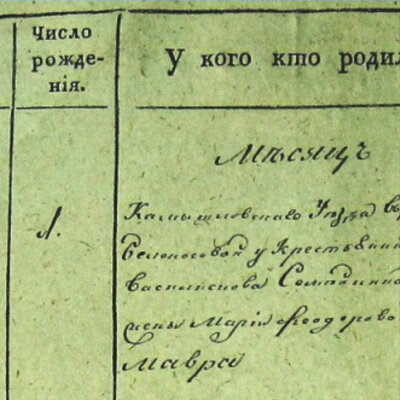 Число
рожде-
нія.
У кого кто родил
Мѣсяцъ
1.
Камышловскаго Уѣзда
Белоносовой у Крестьянин
жены Марія Феодорово
Мавра